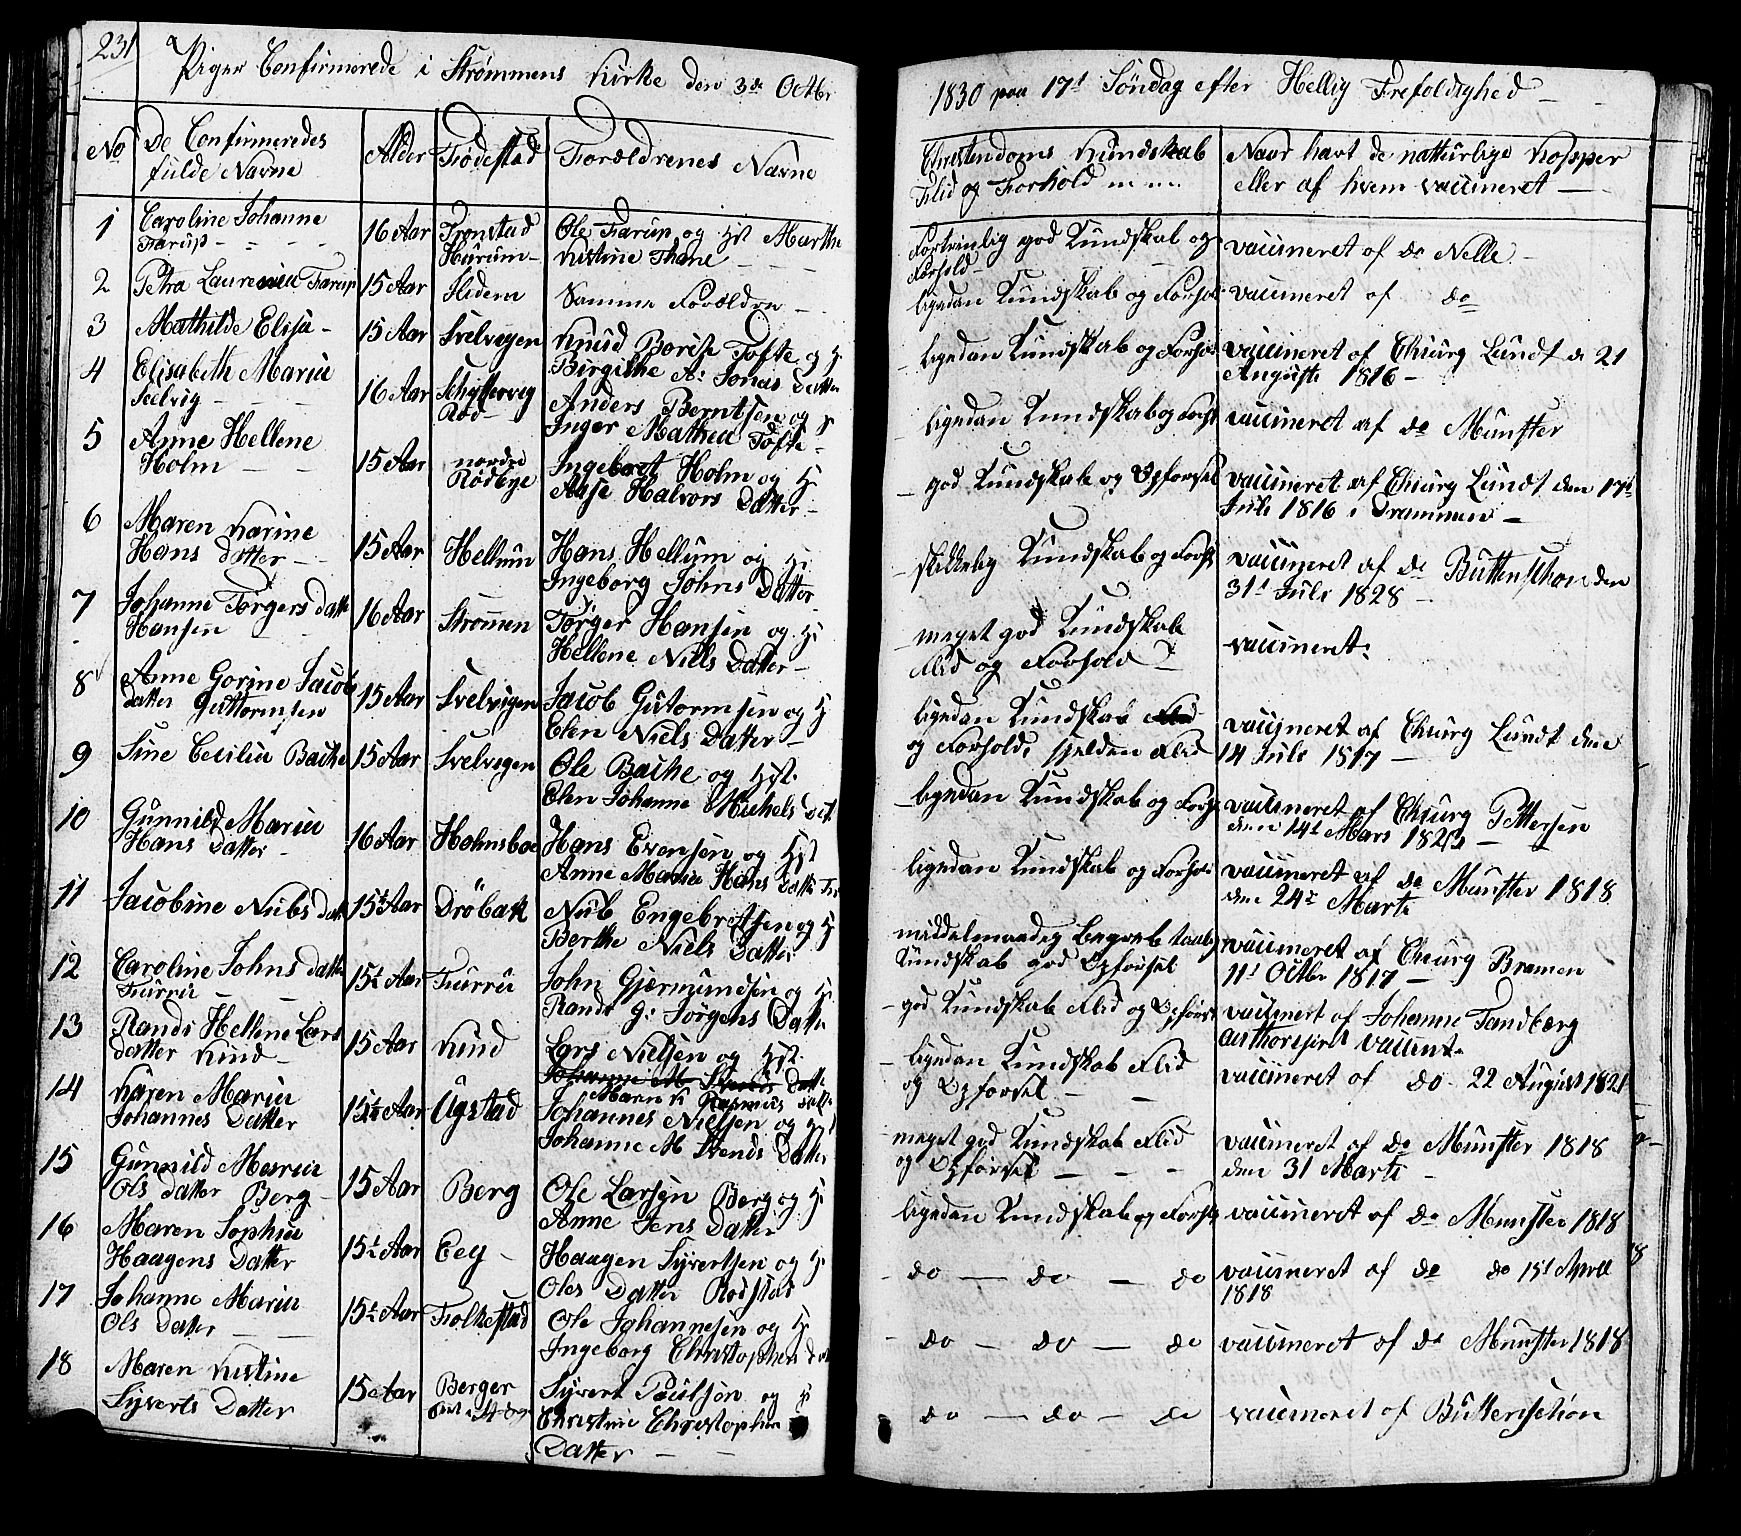 231
Piger Confirmerede i Strømmens Kirke den 3de Octbr
1830 paa 17d Søndag efter Hellig Trefoldighed
No
De Confirmeredes
fulde Navne
Alder
Fødestad
Forældrenes Navne
Christendoms Kundskab
Flid og Forhold
Naar havt de natturlige Kopper
eller af hvem vaccineret
1
Caroline Johanne
Farup
16 Aar
Tronstad
Hurum
Ole Farup og Hst Marthe
Kistine Thane
Fortrinlig god Kundskab og
Forhold
vaccineret af do Nelle
2
Petra Laurenia Farup
15 Aar
Ildem
Samme Forældre
ligedan Kundskab og Forhol
vaccineret af do
3
Mathilde Elisa
15 Aar
Svelvigen
Knud Borch Tofte og H
Birgithe A: Jonas Datter
ligedan Kundskab og Forho
vaccineret af Chiurg Lundt d 21
Auguste 1816
4
Elisabeth Maria
Selvig
16 Aar
Rød
Anders Berntsen og H
Inger Mathea Tofte
ligedan Kundskab og Forh
vaccineret af do Munster
5
Anne Hellene
Holm
15 Aar
nordre
Rødbye
Ingebret Holm og H
Aase Halvors Datter
god Kundskab og Opførsel
vaccineret af Chiurg Lundt den 17de
Juli 1816 i Drammen
6
Maren Karine
Hans Datter
15 Aar
Hellum
Hans Hellum og H
Ingeborg Johns Datter
skikkelig Kundskab og Forh
vaccineret af do Buttenschon den
31t Juli 1828
7
Johanne Torgers Datte
Hansen
16 Aar
Strømen
Torger Hansen og H
Hellene Niels Datter
meget god Kundskab
Flid og Forhold
vaccineret:
8
Anne Gorine Jacob
datter Guttormsen
15 Aar
Svelvigen
Jacob Gutormsen og H
Elen Niels Datter
ligedan Kundskab Flid
og Forhold, sjelden Flid
vaccineret af Chiurg Lundt den
14 Juli 1817
9
Sine Cecilia Bache
15 Aar
Svelvigen
Ole Bache og Hst.
Elen Johanne Michels Dat
ligedan Kundskab og Forh
vaccineret af Chiurg Pettersen
den 14t Mars 1823
10
Gunnild Maria
Hans Datter
16 Aar
Holmsboe
Hans Evensen og Hst
Anne Maria Hans Datter
ligedan Kundskab og Forhol
vaccineret af do Munster 1818
den 24t Marti
11
Jacobine Niels Dat
15½ Aar
Drøbak
Niels Engebretsen og H
Berthe Niels Datter
middelmaadig Begreb taalig
Kundskab god Opførsel
vaccineret af Chiurg Bremen
11t Octbr 1817
12
Caroline Johns Datter
Furru
15½ Aar
Furru
John Gjermundsen og H
Randi G: Jørgens Datter
god Kundskab Flid og Opførs
vaccinert af Johanne Tandberg
authoriseret vaccint.
13
Randi Hellene Lars
datter Kind
15 Aar
Kind
Lars Nielsen og Hst.
Johanne M Svends Datte
Maren K Rasmus Datt
ligedan Kundskab Flid
og Opførsel
vaccineret af do 22 August 1821
14
Karen Maria
Johannes Datter
15½ Aar
Ugstad
Johannes Nielsen og H
Johanne M Svends Datter
meget god Kundskab Flid
og Opførsel
vaccineret af do Munster 1818
den 31 Marti
15
Gunnild Maria
Ols Datter Berg
15 Aar
Berg
Ole Larsen Berg og H
Anne Jens Datter
ligedan Kundskab og Forh
vaccineret af do Munster 1818
16
Maren Sophia
Haagens Datter
15½ Aar
Eeg
Haagen Syvertsen og H
Oles Datter Rødstad
do — do — do
vaccineret af do do 15t April
1818
17
Johanne Maria
Ols Datter
15½ Aar
Folkestad
Ole Johannesen og H
Ingeborg Christophen Dat
do — do — do
vaccineret af do Munster 1818
18
Maren Kistine
Syverts Datter
15 Aar
Berger
Syvert Poulsøn og H
Christine Christophen
Datter
do — do — do
vaccineret af Buttenschøn